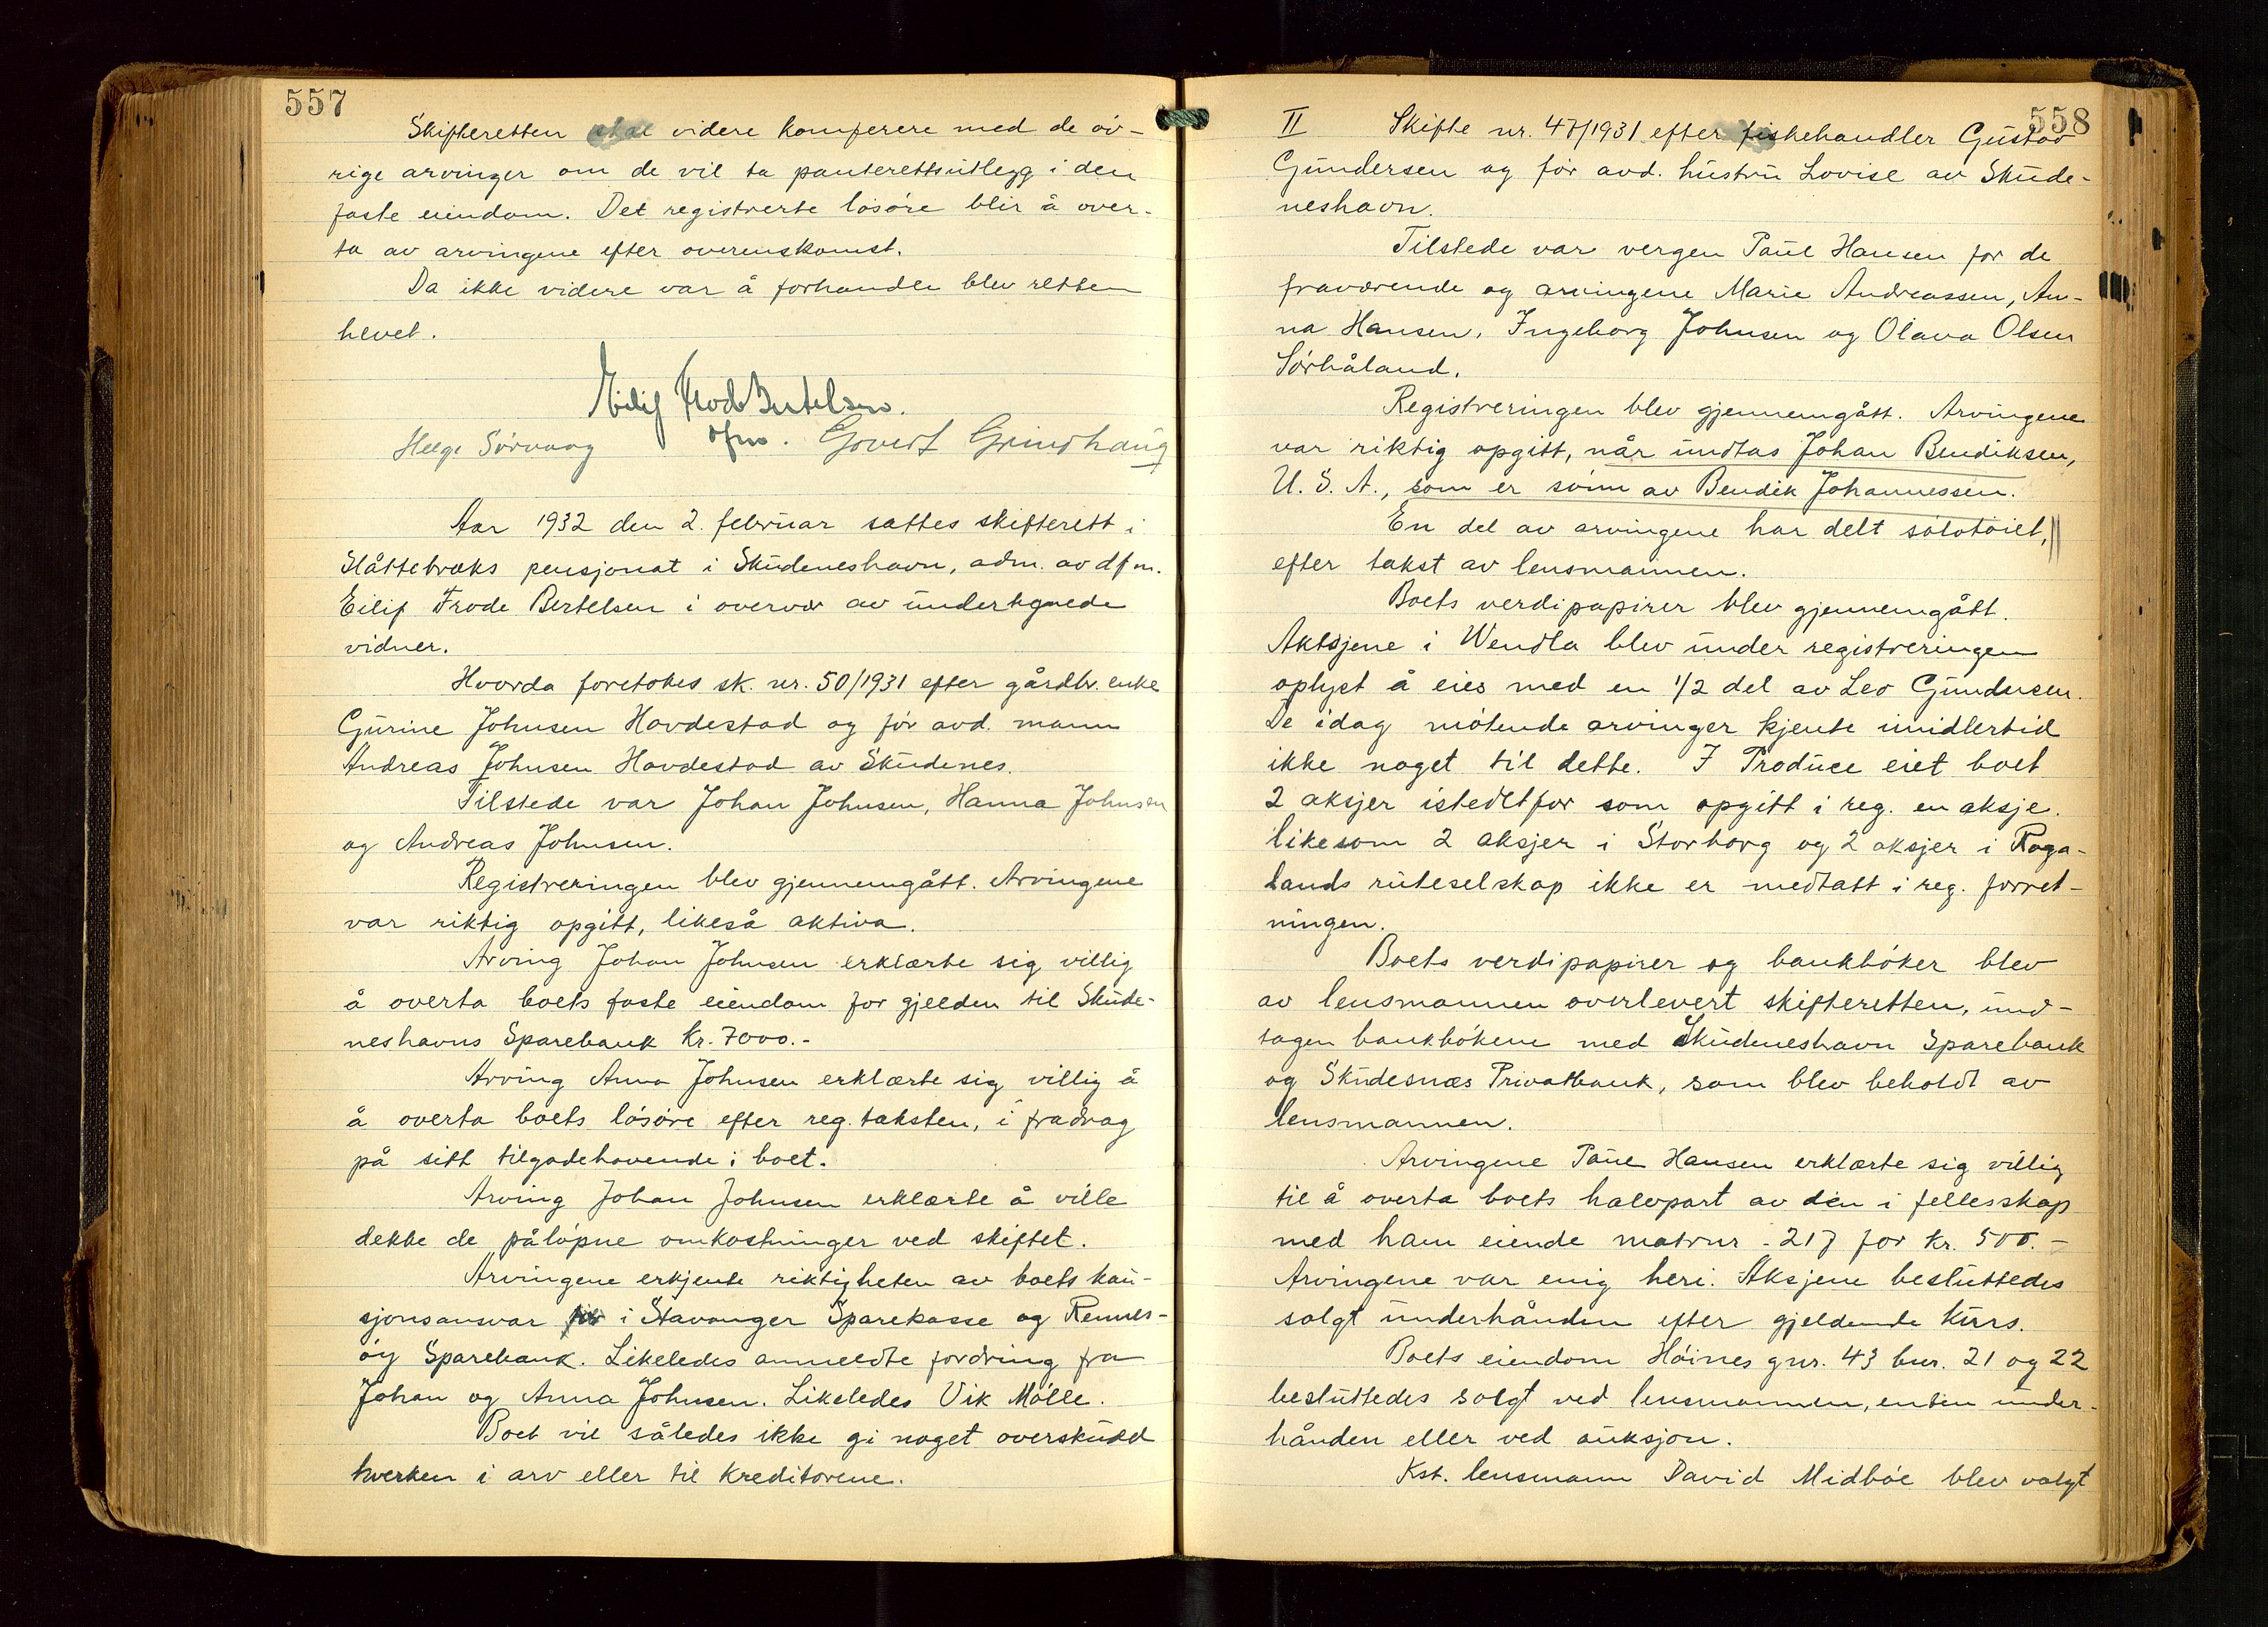 557
Skifteretten skal videre komferere med de öv-
rige arvinger om de vil ta panterettsutlegg i den
faste eiendom. Det registrerte lösöre blir å over-
ta av arvingene efter overenskomst.
Da ikke videre var å forhandle blev retten
hevet.
Eilif Frode Bertelsen.
dfm.
Helge Sörvaag
Govert Grindhaug
Aar 1932 den 2. februar sattes skifterett i
Slåttebræks pensjonat i Skudeneshavn, adm. av dfm.
Eilif Frode Bertelsen i overvær av undertegnede
vidner.
Hvorda foretokes sk. nr. 50/1931 efter gårdbr. enke
Gurine Johnsen Hovdestad og för avd. mann
Andreas Johnsen Hovdestad av Skudenes.
Tilstede var Johan Johnsen, Hanna Johnsen
og Andreas Johnsen.
Registreringen blev gjennemgått. Arvingene
var riktig opgitt, likeså aktiva.
Arving Johan Johnsen erklærte sig villig
å overta boets faste eiendom for gjelden til Skude-
neshavns Sparebank kr. 7000.-
Arving Anna Johnsen erklærte sig villig å
å overta boets lösöre efter reg. taksten, i fradrag
på sitt tilgodehavende i boet.
Arving Johan Johnsen erklærte å ville
dekke de påløpne omkostninger ved skiftet.
Arvingene erkjente riktigheten av boets kau-
sjonsansvar i Stavanger Sparekasse og Rennes-
öy Sparebank. Likeledes anmeldte fordring fra
Johan og Anna Johnsen. Likeledes Vik Mölle.
Boet vil således ikke gi noget overskudd
hverken i arv eller til kreditorene.
558
II Skifte nr. 47/1931 efter fiskehandler Gustav
Gundersen og för avd. hustru Lovise av Skude-
neshavn.
Tilstede var vergen Paul Hansen for de
fraværende og arvingene Marie Andreassen, An-
na Hansen, Ingeborg Johnsen og Olava Olsen
Sörhåland.
Registreringen blev gjennemgått. Arvingene
var riktig opgitt, når undtas Johan Bendiksen,
U. S. A., som er sönn av Bendik Johannessen.
En del av arvingene har delt sölvtöiet,
efter takst av lensmannen.
Boets verdipapirer blev gjennemgått.
Aktsjene i Wendla blev under registreringen
oplyst å eies med en 1/2 del av Leo Gundersen.
De idag mötende arvinger kjente imidlertid
ikke noget til dette. I Produce eiet boet
2 aksjer istedetfor som opgitt i reg. en aksje.
likesom 2 aksjer i Storborg og 2 aksjer i Roga-
lands ruteselskap ikke er medtatt i reg. forret-
ningen.
Boets verdipapirer og bankböker blev
av lensmannen overlevert skifteretten, und-
tagen bankbökene med Skudeneshavn Sparebank
og Skudesnæs Privatbank, som blev beholdt av
lensmannen.
Arvingene Paul Hansen erklærte sig villig
til å overta boets halvpart av den i fellesskap
med ham eiende matrnr. 217 for kr. 500.-
Arvingene var enig heri. Aksjene besluttedes
solgt underhånden efter gjeldende kurs.
Boets eiendom Höines gnr. 43 bnr. 21 og 22
besluttedes solgt ved lensmannen, enten under-
hånden eller ved auksjon.
Kst. lensmann David Midböe blev valgt